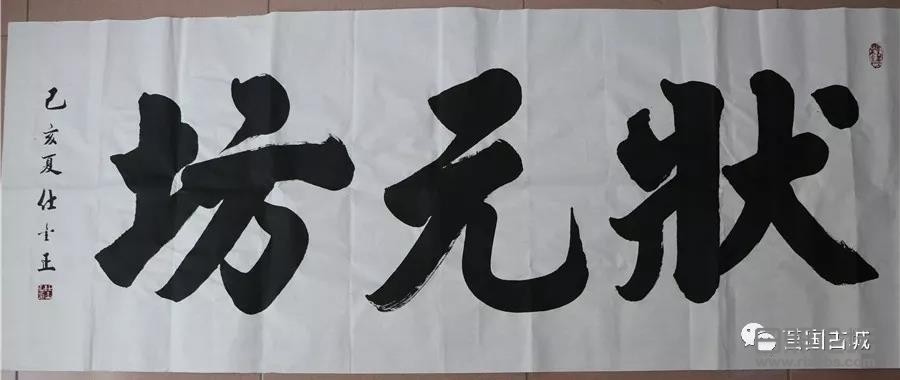 狀元坊
己亥夏仕
莒国古城